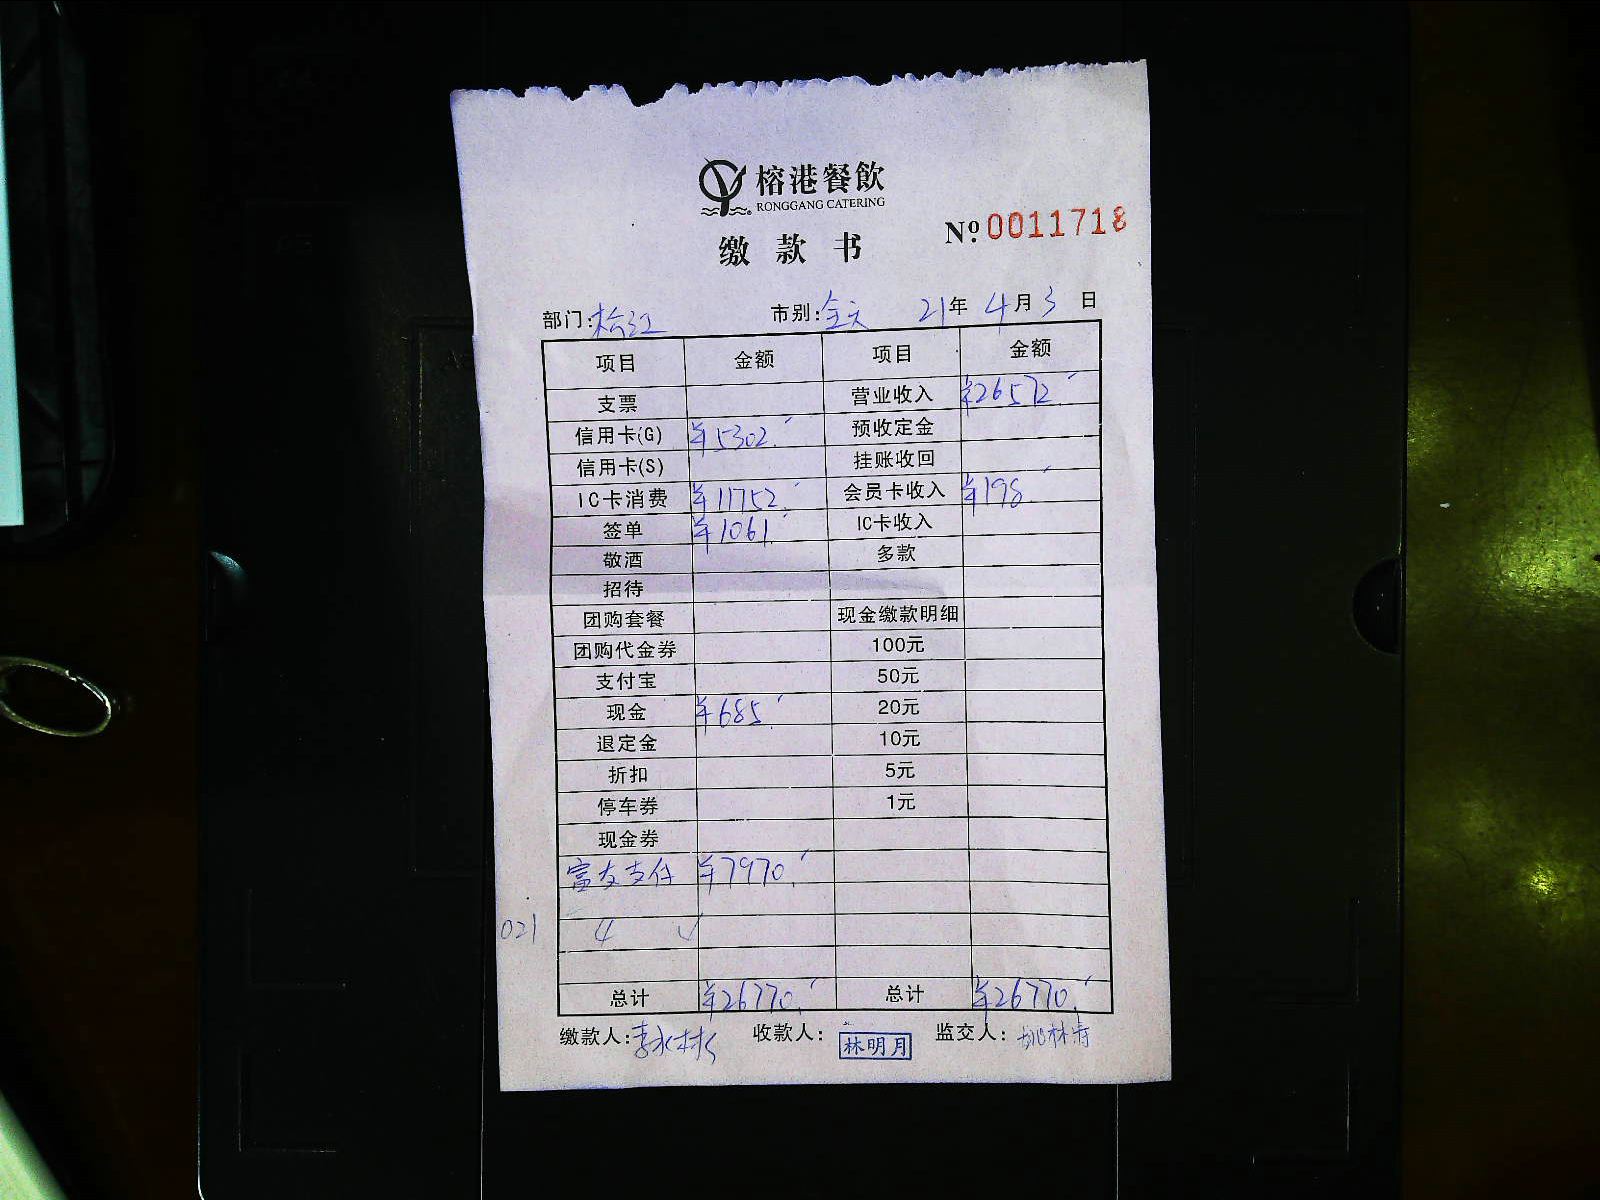 榕港餐飲
RONGGANG CATERING
缴款书
Nº 0011718
部门: 市别:全天 21年4月3日
项目 金额 项目 金额
支票 营业收入 ¥26572.
信用卡(G) ¥5302. 预收定金
信用卡(S) 挂账收回
IC卡消费 ¥11752. 会员卡收入 ¥198
签单 ¥1061. IC卡收入
敬酒 多款
招待
团购套餐 现金缴款明细
团购代金券 100元
支付宝 50元
现金 ¥685. 20元
退定金 10元
折扣 5元
停车券 1元
现金券
富友支付 ¥7970.
021 4 ✓
总计 ¥26770. 总计 ¥26770.
缴款人: 收款人: 林明月 监交人:姚林寿